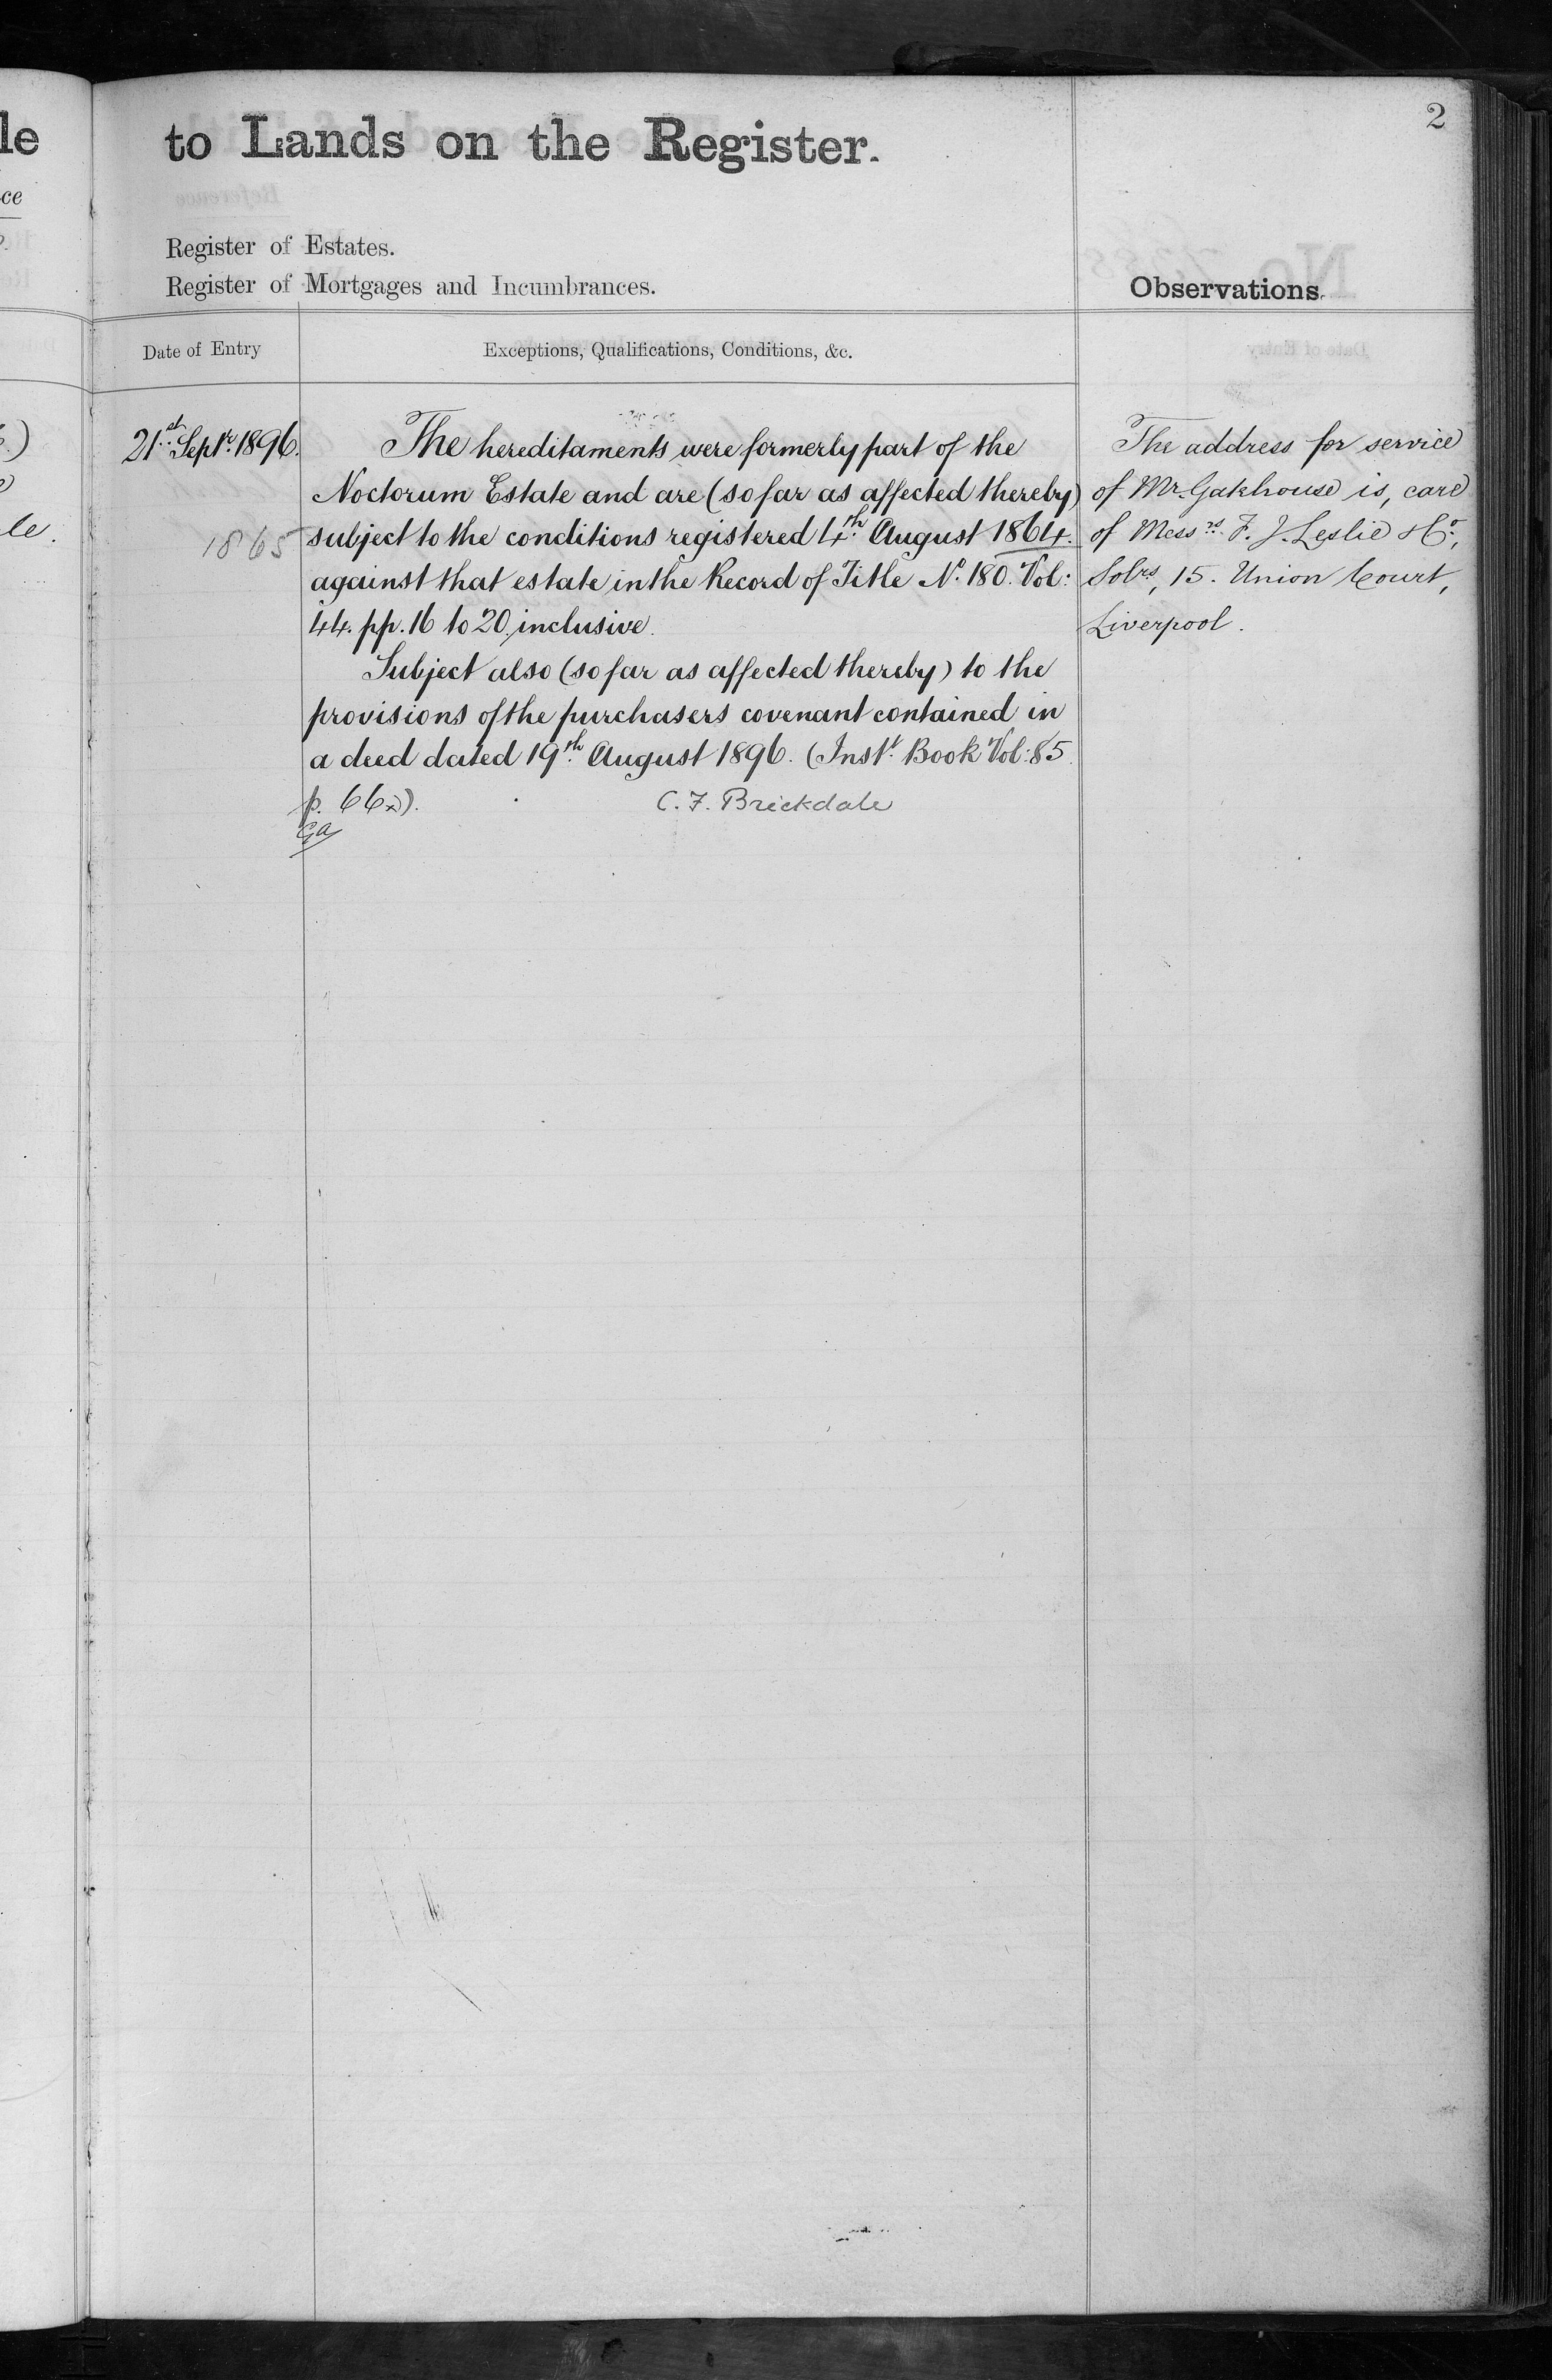 2
to Lands on the Register.
Register of Estates.
Register of Mortgages and Incumbrances.
Observations.
Date of Entry
Exceptions, Qualifications, Conditions, &c.
21st Septr. 1896.
1865
The hereditaments were formerly part of the
Noctorum Estate and are (so far as affected thereby)
subject to the conditions registered 4th August 1864.
against that estate in the Record of Title No. 180. Vol:
44. pp. 16 to 20, inclusive.
Subject also (so far as affected thereby) to the
provisions of the purchasers covenant contained in
a deed dated 19th August 1896. (Instt. Book Vol: 85.
p. 66
C. F. Brickdale
The address for service
of Mr. Gatehouse is, care
of Messrs. F. J. Leslie & Co.,
Solrs, 15. Union Court,
Liverpool.